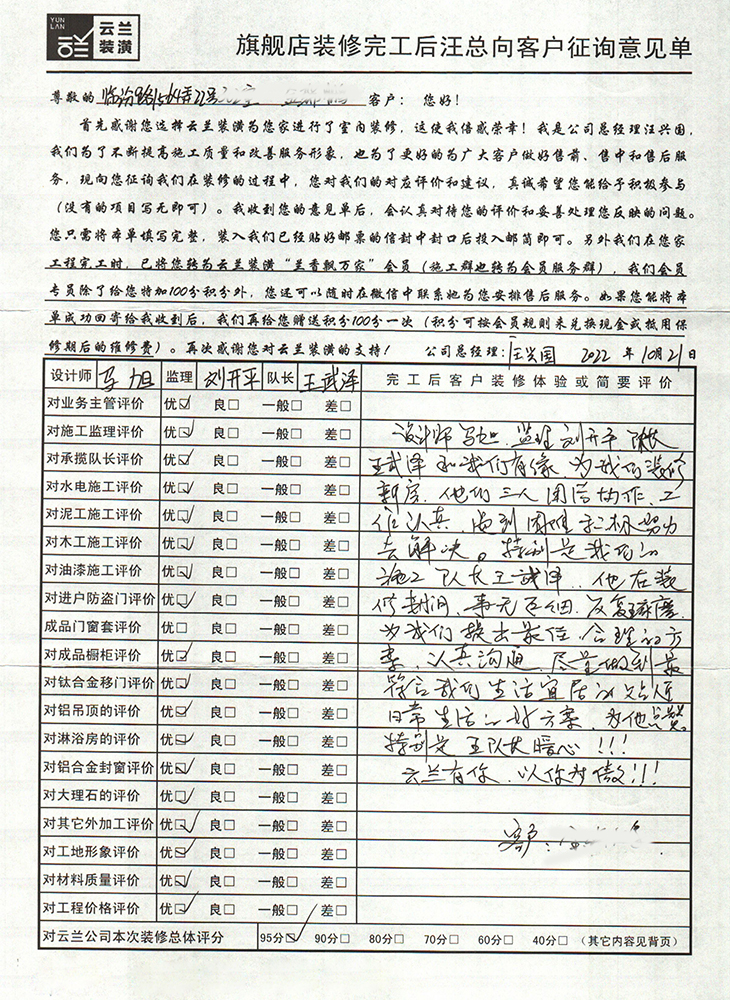 YUN LAN 云兰装潢
旗舰店装修完工后汪总向客户征询意见单
尊敬的 临汾路1564弄22号 客户： 您好！
首先感谢您选择云兰装潢为您家进行了室内装修，这使我倍感荣幸！我是公司总经理汪兴国，
我们为了不断提高施工质量和改善服务形象，也为了更好的为广大客户做好售前、售中和售后服
务，现向您征询我们在装修的过程中，您对我们的对应评价和建议，真诚希望您能给予积极参与
（没有的项目写无即可）。我收到您的意见单后，会认真对待您的评价和妥善处理您反映的问题。
您只需将本单填写完整，装入我们已经贴好邮票的信封中封口后投入邮筒即可。另外我们在您家
工程完工时，已将您转为云兰装潢“兰香飘万家”会员（施工群也转为会员服务群），我们会员
专员除了给您特加100分积分外，您还可以随时在微信中联系她为您安排售后服务。如果您能将本
单成功回寄给我收到后，我们再给您赠送积分100分一次（积分可按会员规则来兑换现金或抵用保
修期后的维修费）。再次感谢您对云兰装潢的支持！ 公司总经理：汪兴国 2022 年 10月21日
设计师 马旭 监理 刘开平 队长 王武泽 完工后客户装修体验或简要评价
对业务主管评价 优☑ 良□ 一般□ 差□
对施工监理评价 优☑ 良□ 一般□ 差□ 设计师马旭、监理刘开平、队长
对承揽队长评价 优☑ 良□ 一般□ 差□ 王武泽和我们有缘，为我们装修
对水电施工评价 优☑ 良□ 一般□ 差□ 新房，他们三人团结协作，工
对泥工施工评价 优☑ 良□ 一般□ 差□ 作认真，遇到困难积极努力
对木工施工评价 优☑ 良□ 一般□ 差□ 去解决。特别是我们的
对油漆施工评价 优☑ 良□ 一般□ 差□ 施工队长王武泽，他在装
对进户防盗门评价 优☑ 良□ 一般□ 差□ 修期间，事无巨细，反复琢磨，
成品门窗套评价 优□ 良□ 一般□ 差□ 为我们提出最佳、合理的方
对成品橱柜评价 优☑ 良□ 一般□ 差□ 案，认真沟通，尽量做到最
对钛合金移门评价 优☑ 良□ 一般□ 差□ 符合我们生活宜居的
对铝吊顶的评价 优☑ 良□ 一般□ 差□ 日常生活的好方案，为他点赞。
对淋浴房的评价 优☑ 良□ 一般□ 差□ 特别是王队长暖心！！！
对铝合金封窗评价 优☑ 良□ 一般□ 差□ 云兰有你，以你为傲！！！
对大理石的评价 优☑ 良□ 一般□ 差□
对其它外加工评价 优☑ 良□ 一般□ 差□
对工地形象评价 优☑ 良□ 一般□ 差□ 客户：
对材料质量评价 优☑ 良□ 一般□ 差□
对工程价格评价 优☑ 良□ 一般□ 差□
对云兰公司本次装修总体评分 95分☑ 90分□ 80分□ 70分□ 60分□ 40分□ （其它内容见背页）